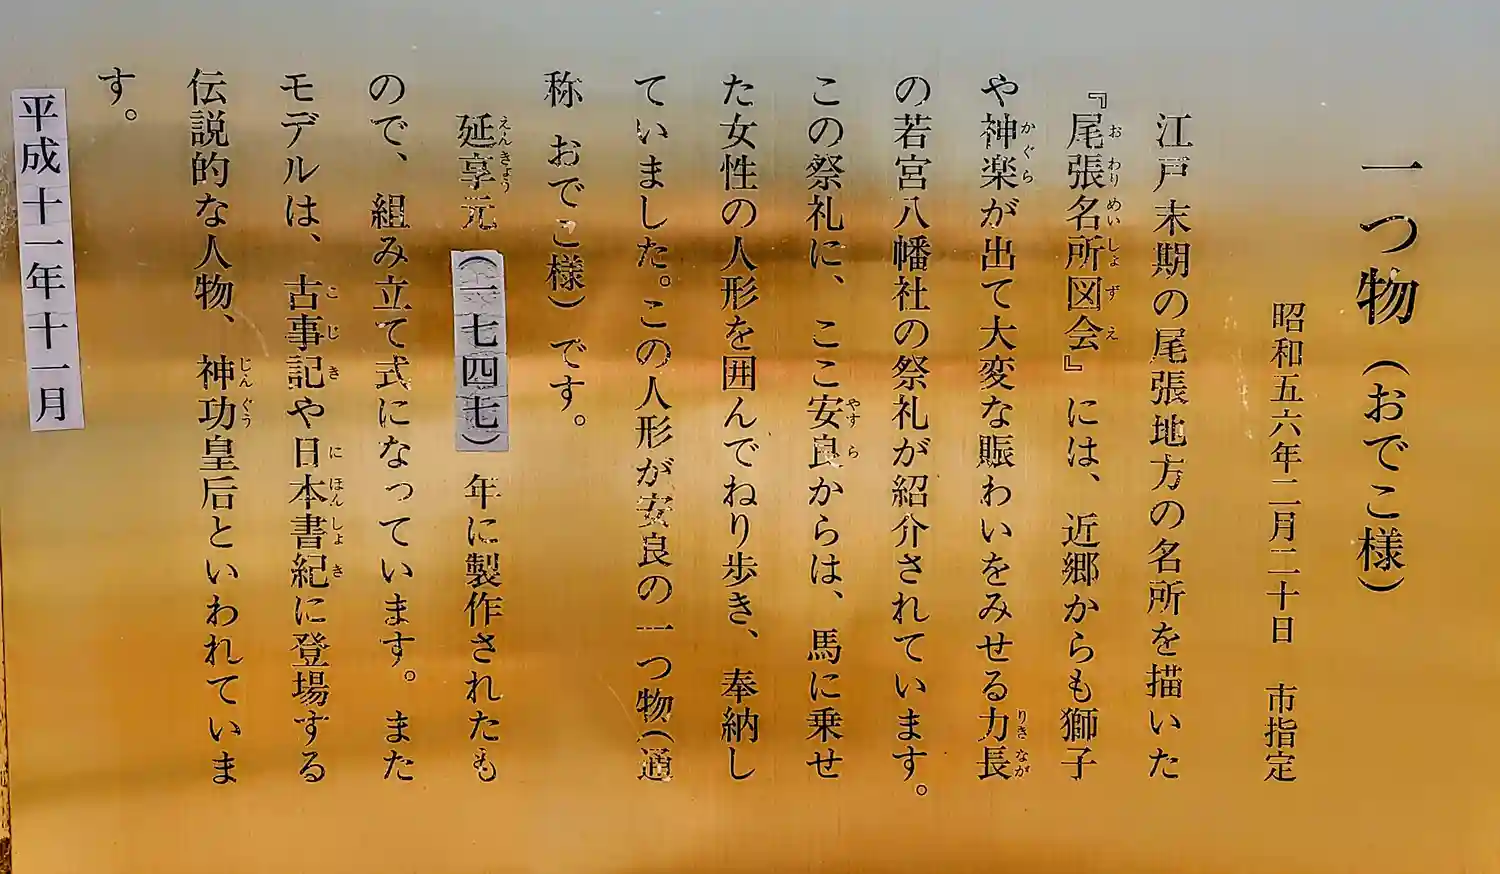 一つ物（おでこ様）
昭和五六年二月二十日　市指定
江戸末期の尾張地方の名所を描いた
『尾張名所図会』には、近郷からも獅子
や神楽が出て大変な賑わいをみせる力長
の若宮八幡社の祭礼が紹介されています。
この祭礼に、ここ安良からは、馬に乗せ
た女性の人形を囲んでねり歩き、奉納し
ていました。この人形が安良の一つ物（通
称 おでこ様）です。
延享元（一七四七）年に製作されたも
ので、組み立て式になっています。また
モデルは、古事記や日本書紀に登場する
伝説的な人物、神功皇后といわれていま
す。
平成十一年十一月